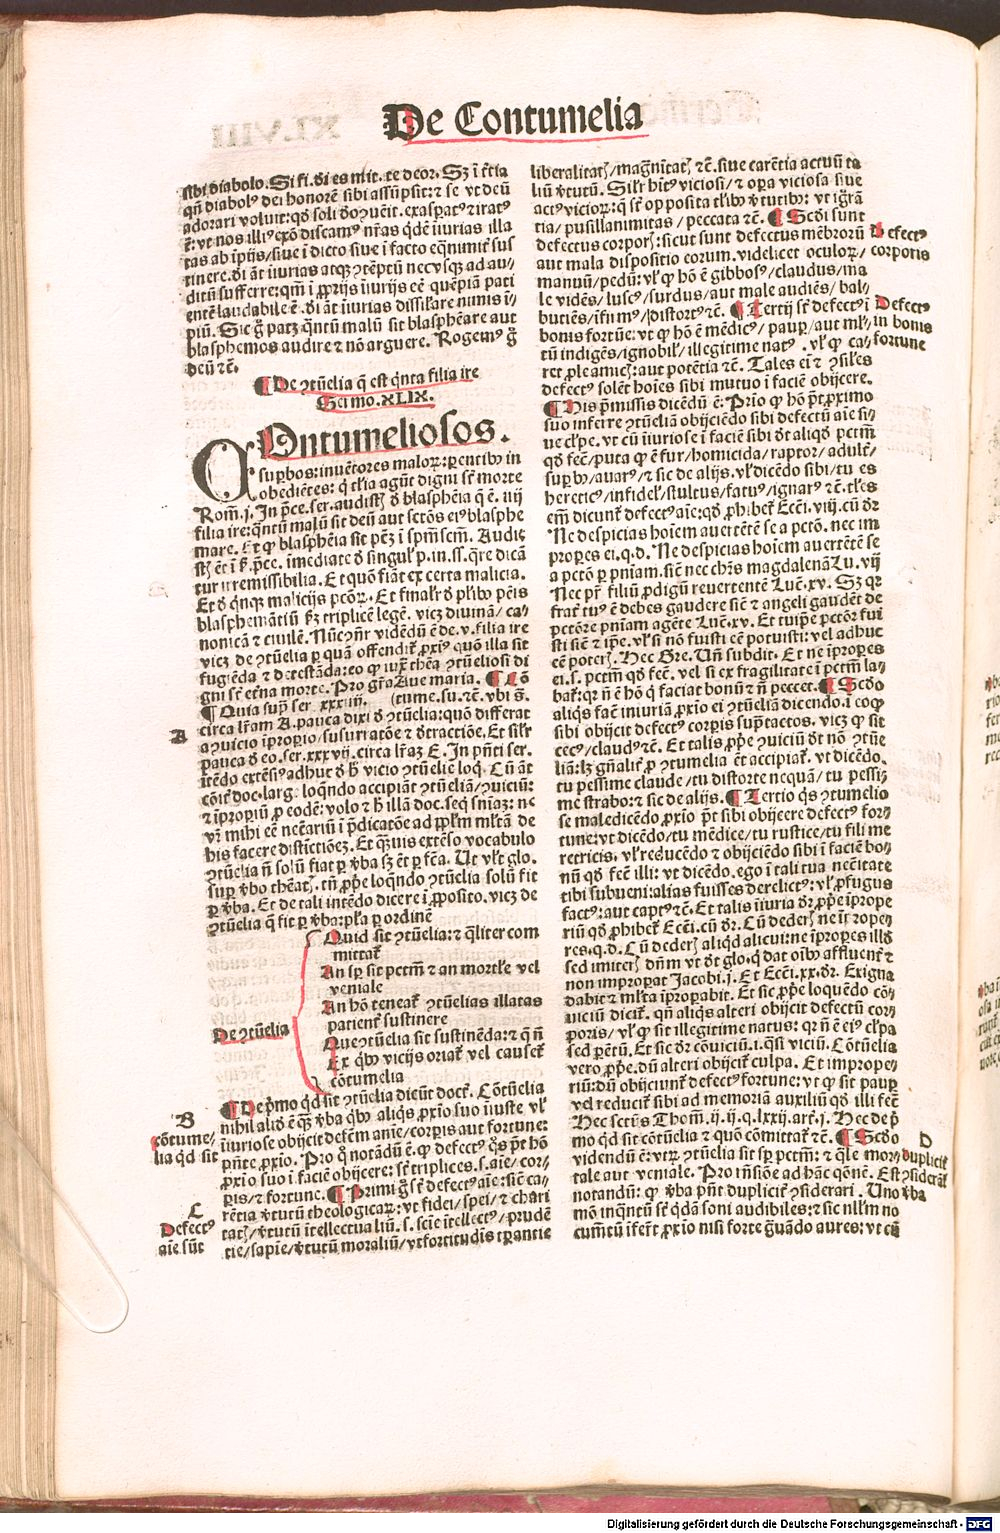 De Contumelia
sibi diabolo. Si fi. di es mit. te deor. Sz i t̃tia
qñ diabolꝰ dei honorẽ sibi assũpsit: ⁊ se vt deũ
adorari voluit: qđ soli
ẽ: vt nos illiꝰ exõ discamꝰ nr̃as qđẽ iiurias illa
tas ab ip̃is/siue i dicto siue i facto eq̃nimit̃ sus
tinere. di ãt iiurias atqꝫ ꝯtẽptũ nec vsqꝫ ad au/
ditũ sufferre: qm̃ i ꝓprijs iiurijs eẽ quẽpiã pati
entẽ laudabile ẽ. di ãt iiurias dissil̃are nimis ĩ/
piũ. Sic g̃ patꝫ q̃ntũ malũ sit blasphẽare aut
blasphemos audire ⁊ nõ arguere. Rogemꝰ g̃
deũ ⁊c̃.
¶ De ꝯtũelia q̃ est q̃nta filia ire
Sermo. XLIX.
COntumeliosos.
suꝑbos: inuẽtores maloꝝ: ꝑentibꝰ in
obediẽtes: q̃ tl̃ia agũt digni st̃ morte
Rom̃. j. In p̃ce. ser. audistꝭ đ blasphẽia q̃ ẽ. iiij
filia ire: q̃ntũ malũ sit deũ aut sctõs eiꝰ blasphe
mare. Et ꝙ blasphẽia sit pctm̃ i spm̃ scm̃. Audis
stꝭ ẽt i ẽ. p̃ce. imediate đ singul̃ p. in. ss. q̃re dicã
tur irremissibilia. Et quõ fiãt ex certa malicia.
Et đ q̃nqꝫ malicijs pctõꝝ. Et final̃r đ pl̃ibꝰ pẽis
blasphemãtiũ ẜm triplicẽ legẽ. vicꝫ diuinã/ ca/
nonicã ⁊ ciuilẽ. Nũc ꝯñr vidẽdũ ẽ de. v. filia ire
vicꝫ de ꝯtũelia ꝑ quã offendit̃ ꝓxiꝰ quõ illa sit
fugiẽda ⁊ detestãda: eo ꝙ iuxͭ thẽa ꝯtũeliosi di
gni st̃ etẽna morte. Pro gr̃a Aue maria. ¶ Cõ
¶ Quia sup̃ ser. xxxiiij. (tume. su. ⁊c̃. vbi s̃.
A
circa lr̃am A. pauca dixi đ ꝯtũelia: quõ differat
a ꝯuicio ĩproꝑio/ susurratõe ⁊ đtractiõe. Et sil̃r
pauca đ eo. ser. xxxvij. circa lr̃aꝫ E. In pñti ser.
itẽdo extẽsiꝰ adhuc đ h̃ vicio ꝯtũelie loq̃. Cũ ãt
cõit̃ doc. larg. loqũdo accipiãt ꝯtũeliã/ ꝯuiciũ:
⁊ ĩproꝑiũ ꝓ eodẽ: volo ⁊ h̃ illã doc. seq̃ sniaꝫ: ne
vr̃ mihi eẽ nec̃ariũ i p̃dicatõe ad ppl̃m ml̃tã de
his facere distĩctiõeꝫ. Et q̃uis extẽso vocabulo
ꝯtũelia ñ solũ fiat ꝑ v̾ba sꝫ ẽt ꝑ fc̃a. Ut vl̃t glo.
suꝑ v̾bo thẽatꝭ. tñ ꝓpͥe loq̃ndo ꝯtũelia solũ fit
ꝑ v̾ba. Et de tali intẽdo dicere i ꝓposito. vicꝫ de
ꝯtũelia q̃ fit ꝑ v̾ba: pl̃a ꝑ ordinẽ
De ꝯtũelia
Quid sit ꝯtũelia: ⁊ q̃liter com
mittat̃
An sp̃ sit pctm̃ ⁊ an mortl̃e vel
veniale
An hõ teneat̃ ꝯtũelias illatas
patient̃ sustinere
Que ꝯtũelia sit sustinẽda: ⁊ q̃ ñ
Ex qͥbꝰ vicijs oriat̃ vel causet̃
cõtumelia
B
cõtume/
lia qđ sit
¶ De pͥmo qđ sit ꝯtũelia dicũt doct̃. Cõtũelia
nihil aliđ ẽ qꝫ v̾ba qͥbꝰ aliqs ꝓxio suo iiuste vl̃
iiuriose obijcit defẽm anie/ corꝑis aut fortune:
pñte ꝓxio. Pro q̃ notãdũ ẽ. ꝙ defectꝰ q̃s pt̃ hõ
ꝓxio suo i faciẽ obijcere: st̃ triplices. s. aie/ cor/
ꝑis/ ⁊ fortune. ¶ Primi g̃ st̃ defectꝰ aie: sic̃ ca/
rẽtia v̾tutũ theologicaꝝ: vt fidei/ spei/ ⁊ chari
C
Defectꝰ
aie sũt
tatꝭ/ v̾tutũ itellectualiũ. s. scie itellectꝰ/ prudẽ
tie/ sapie/ v̾tutũ moraliũ/ vt fortitudis tꝑantie
liberalitatꝭ/ magnĩtatꝭ ⁊c̃. siue carẽtia actuũ ta
liũ v̾tutũ. Sil̃r hitꝰ viciosi/ ⁊ oꝑa viciosa siue
actꝰ vicioꝝ: q̃ st̃ opposita tl̃ibꝰ v̾tutibꝰ: vt igr̃a
tia/ pusillanimitas/ peccata ⁊c̃. ¶ Scđi sunt
Defectꝰ
corporis
defectus corporꝭ: sicut sunt defectus mẽbrorũ
aut mala dispositio eorum. videlicet oculoꝝ/
manuũ/ pedũ: vl̃ ꝙ hõ ẽ gibbosꝰ/ claudus/ ma
le vidẽs/ luscꝰ/ surdus/ aut male audiẽs/ bal/
buciẽs/ ifirmꝰ/ distortꝰ ⁊c̃. ¶ Tertij st̃ defectꝰ i
Defectꝰ
in bonis
fortune
bonis fortũe: vt ꝙ hõ ẽ mẽdicꝰ/ pauꝑ/ aut ml̃/
tũ indigẽs/ ignobil̃/ illegitime natꝰ. vl̃ ꝙ ca/
ret ꝓle amicꝭ: aut potẽtia ⁊c̃. Tales ei ⁊ ꝯsil̃es
defectꝰ solẽt hoies sibi mutuo i faciẽ obijcere.
¶ His p̃missis dicẽdũ ẽ: Prio ꝙ hõ pt̃ ꝓximo
suo inferre ꝯtũeliã obijciẽdo sibi defectũ aie si/
ue cl̃pe. vt cũ iiuriose i faciẽ sibi đt aliqđ pctm̃
qđ fec̃/ puta ꝙ ẽ fur/ homicida/ raptor/ adult̃/
suꝑbꝰ/ auarꝰ/ ⁊ sic de alijs. vl̃ dicẽdo sibi/ tu es
hereticꝰ/ infidel̃/ stultus/ fatuꝰ/ ignarꝰ ⁊c̃. tl̃es
em̃ dicunt̃ defectꝰ aie: qđ ꝓhibet̃ Ecc̃i. viij. cũ đr
Ne despicias hoiem auertẽtẽ se a pctõ. nec im
properes ei. q. d. Ne despicias hoiem auertẽtẽ se
a pctõ ꝑ pniam. sic̃ nec chr̃s magdalenã Lu. vij
Nec pr̃ filiũ ꝓdigũ reuertentẽ Luc̃. xv. Sꝫ qꝛ
frat̃ tuꝰ ẽ debes gaudere sic̃ ⁊ angeli gaudẽt de
pctõre pniam agẽte Luc̃. xv. Et tuip̃e pctõr fui
sti sic̃ ⁊ ip̃e. vl̃ si nõ fuisti eẽ potuisti: vel adhuc
eẽ poterꝭ. Hec Gre. Uñ subdit. Et ne ĩproꝑes
ei. s. pctm̃ qđ fec̃. vel si ex fragilitate i pctm̃ la/
bat̃: qꝛ ñ ẽ hõ q̃ faciat bonũ ⁊ ñ peccet. ¶ Scđo
aliqs fac̃ iniuriã ꝓxio ei ꝯtũeliã dicendo. i eo ꝙ
sibi obijcit defectꝰ corꝑis sup̃tactos. vicꝫ ꝙ sit
cecꝰ/ claudꝰ ⁊c̃. Et talis ꝓpͥe ꝯuiciũ đt nõ ꝯtũe
liã: lꝫ gñalit̃ ꝓ ꝯtumelia ẽt accipiat̃. vt dicẽdo.
tu pessime claude/ tu distorte nequã/ tu pessi/
me strabo: ⁊ sic de alijs. ¶ Tertio q̃s ꝯtumelio
se maledicẽdo ꝓxio pt̃ sibi obijcere defectꝰ for/
tune: vt dicẽdo/ tu mẽdice/ tu rustice/ tu fili me
retricis. vl̃ reducẽdo ⁊ obijciẽdo sibi i faciẽ bo/
nũ qđ fec̃ illi: vt dicẽdo. ego i tali tua nec̃itate
tibi subueni: alias fuisses derelictꝰ: vl̃ ꝓfugus
factꝰ: aut captꝰ ⁊c̃. Et talis iiuria đr ꝓpͥe ĩprope
riũ qđ ꝓhibet̃ Ecc̃i. cũ đr. Cũ dederꝭ ne ĩproꝑe
res. q. d. Cũ dederꝭ aliqđ alicui: ne ĩproꝑes illđ
sed imiterꝭ dñm vt đt glo. q̃ dat oĩbꝰ affluent̃ ⁊
non improꝑat Jacobi. j. Et Ecc̃i. xx. đr. Exigua
dabit ⁊ ml̃ta ĩproꝑabit. Et sic ꝓpͥe loquẽdo cõ/
uiciũ dicit̃. qñ aliqs alteri obijcit defectũ cor/
poris/ vl̃ ꝙ sit illegitime natus: qꝛ ñ ẽ eiꝰ cl̃pa
sed parẽtũ. Et sic đr cõuiciũ. i. qsi viciũ. Cõtũelia
vero ꝓpͥe. dũ alteri obijcit̃ culpa. Et impropе/
riũ: dũ obijciunt̃ defectꝰ fortune: vt ꝙ sit pauꝑ
vel reducit̃ sibi ad memoriã auxiliũ qđ illi fec̃
Hec sctũs Thom̃. ij. ij. q. lxxij. art̃. j. Hec de pͥ
mo qđ sit cõtũelia ⁊ quõ cõmittat̃ ⁊c̃. ¶ Scđo
D
v̾ba
duplicit̃
ꝯsiderãt̃
videndũ ẽ: vtꝝ ꝯtũelia sit sp̃ pctm̃: ⁊ q̃le mor/
tale aut veniale. Pro rñsiõe ad hãc qõnẽ. Est
notandũ: ꝙ v̾ba pñt duplicit̃ ꝯsiderari. Uno
mõ inq̃ntũ st̃ q̃dã soni audibiles: ⁊ sic nll̃m no
cumẽtũ ifert̃ ꝓxio nisi forte g̃uãdo aures: vt cũ
Digitalisierung gefördert durch die Deutsche Forschungsgemeinschaft - DFG